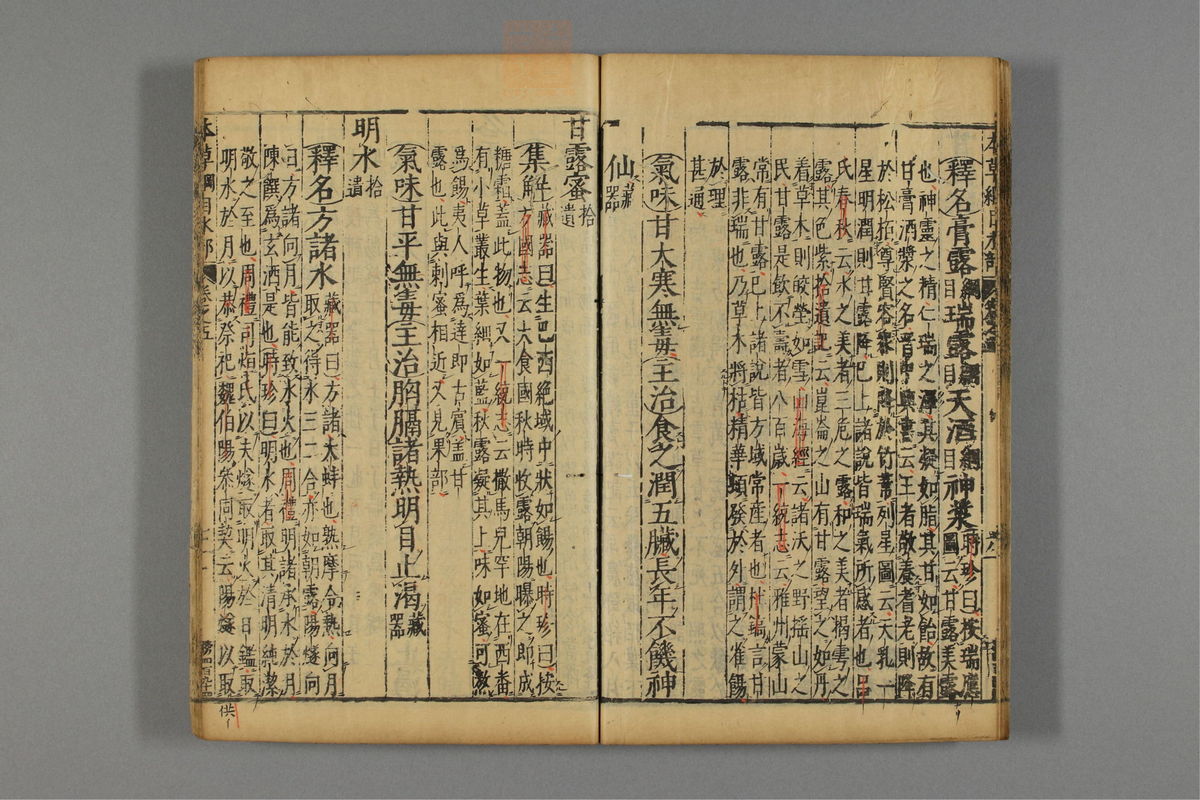 釋名膏露綱目瑞露綱目天酒綱目神漿時珍曰按瑞應圖云甘露美露
也神靈之精仁瑞之澤其凝如脂其甘如飴故有
甘膏酒漿之名晉中興書云王者敬養耆老則降
於松栢尊賢容衆則降於竹葦列星圖云天乳一
星明潤則甘露降已上諸說皆瑞氣所感者也呂
氏春秋云水之美者三危之露和之美者揭雩之
露其色紫拾遺記云崑崙之山有甘露望之如丹
着草木則皎瑩如雪山海經云諸沃之野搖山之
民甘露是飲不壽者八百歲一統志云雅州蒙山
常有甘露已上諸說皆方域常產者也杜鎬言甘
露非瑞也乃草木將枯精華頓發於外謂之雀餳
於理
甚通
氣味甘大寒無毒主治食之潤五臟長年不饑神
仙藏器
甘露蜜拾遺
集解藏器曰生巴西絕域中狀如餳也時珍曰按
方國志云大食國秋時收露朝陽曝之即成
糖霜蓋此物也又一統志云撒馬兒罕地在西番
有小草叢生葉細如藍秋露凝其上味如蜜可熬
爲餳夷人呼爲達即古賔蓋甘
露也此與刺蜜相近又見果部
氣味甘平無毒主治胸膈諸熱明目止渴藏器
明水拾遺
釋名方諸水藏器曰方諸大蚌也熟摩令熱向月
取之得水三二合亦如朝露陽燧向
日方諸向月皆能致水火也周禮明諸承水於月
陳饌爲玄酒是也時珍曰明水者取其清明純潔
敬之至也周禮司烜氏以夫燧取明火於日鑑取
明水於月以恭祭祀魏伯陽叅同契云陽燧以取
本草綱目水部
供